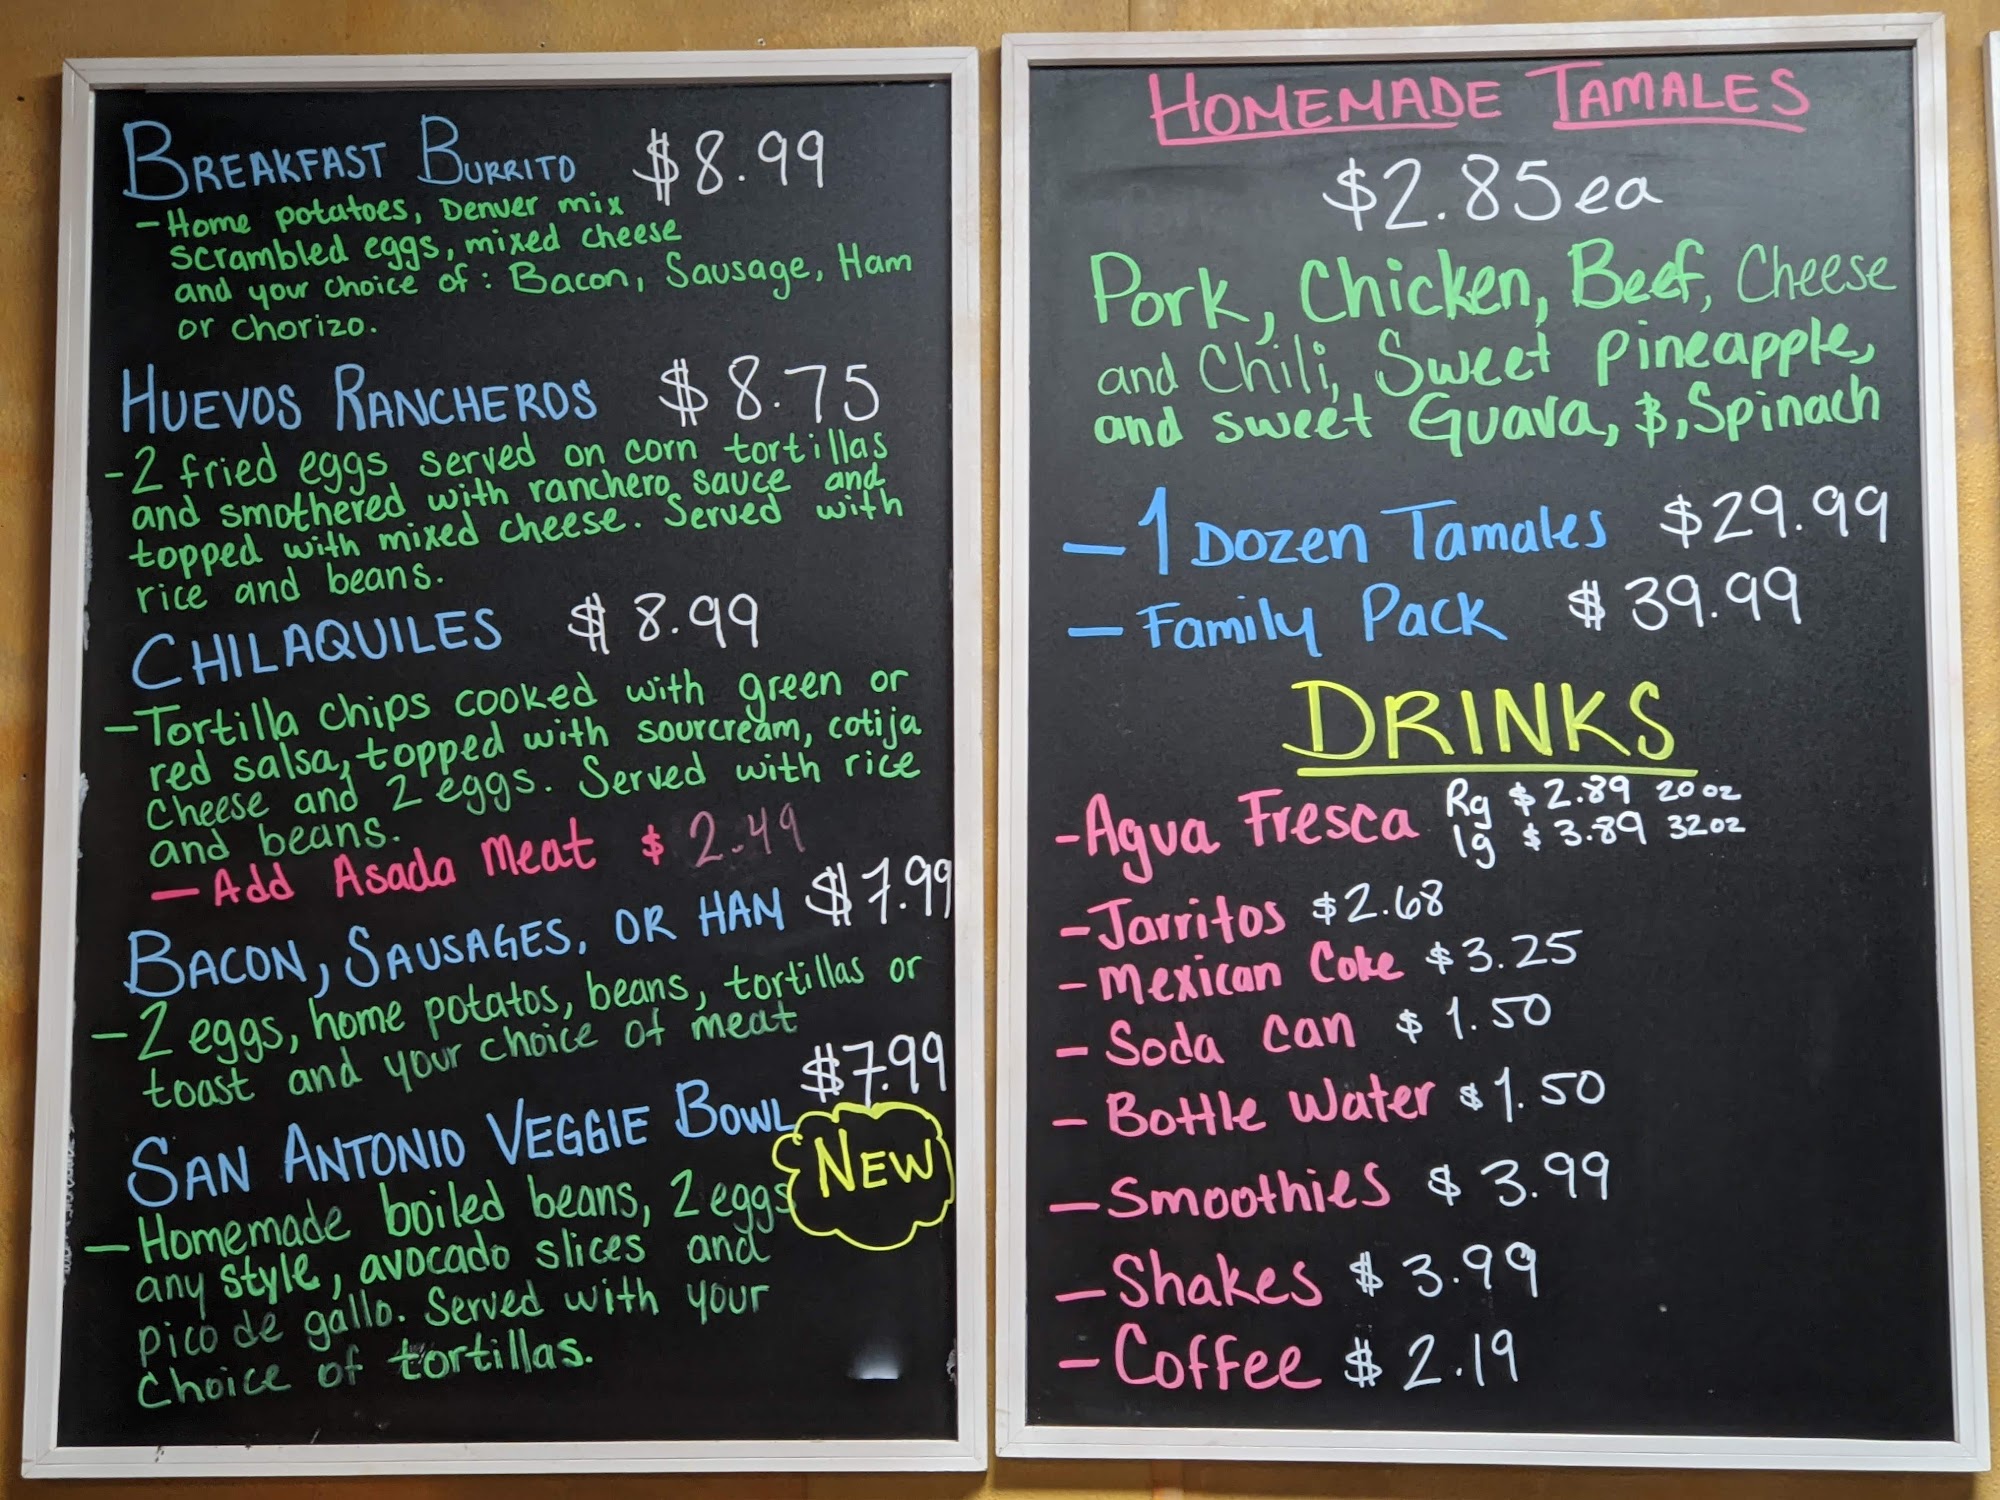 BREAKFAST BURRITO $8.99
- Home potatoes, Denver mix
scrambled eggs, mixed cheese
and your choice of: Bacon, Sausage, Ham
or chorizo.
HUEVOS RANCHEROS $8.75
- 2 fried eggs served on corn tortillas
and smothered with ranchero sauce and
topped with mixed cheese. Served with
rice and beans.
CHILAQUILES $8.99
- Tortilla chips cooked with green or
red salsa, topped with sourcream, cotija
cheese and 2 eggs. Served with rice
and beans.
- Add Asada Meat $2.49
BACON, SAUSAGES, OR HAM $7.99
- 2 eggs, home potatos, beans, tortillas or
toast and your choice of meat
SAN ANTONIO VEGGIE BOWL $7.99
NEW
- Homemade boiled beans, 2 eggs
any style, avocado slices and
pico de gallo. Served with your
choice of tortillas.
HOMEMADE TAMALES
$2.85 ea
Pork, Chicken, Beef, Cheese
and Chili, Sweet pineapple,
and sweet Guava, $, Spinach
- 1 Dozen Tamales $29.99
- Family Pack $39.99
DRINKS
- Agua Fresca Rg $2.89 20oz
lg $3.89 32oz
- Jarritos $2.68
- Mexican Coke $3.25
- Soda can $1.50
- Bottle Water $1.50
- Smoothies $3.99
- Shakes $3.99
- Coffee $2.19